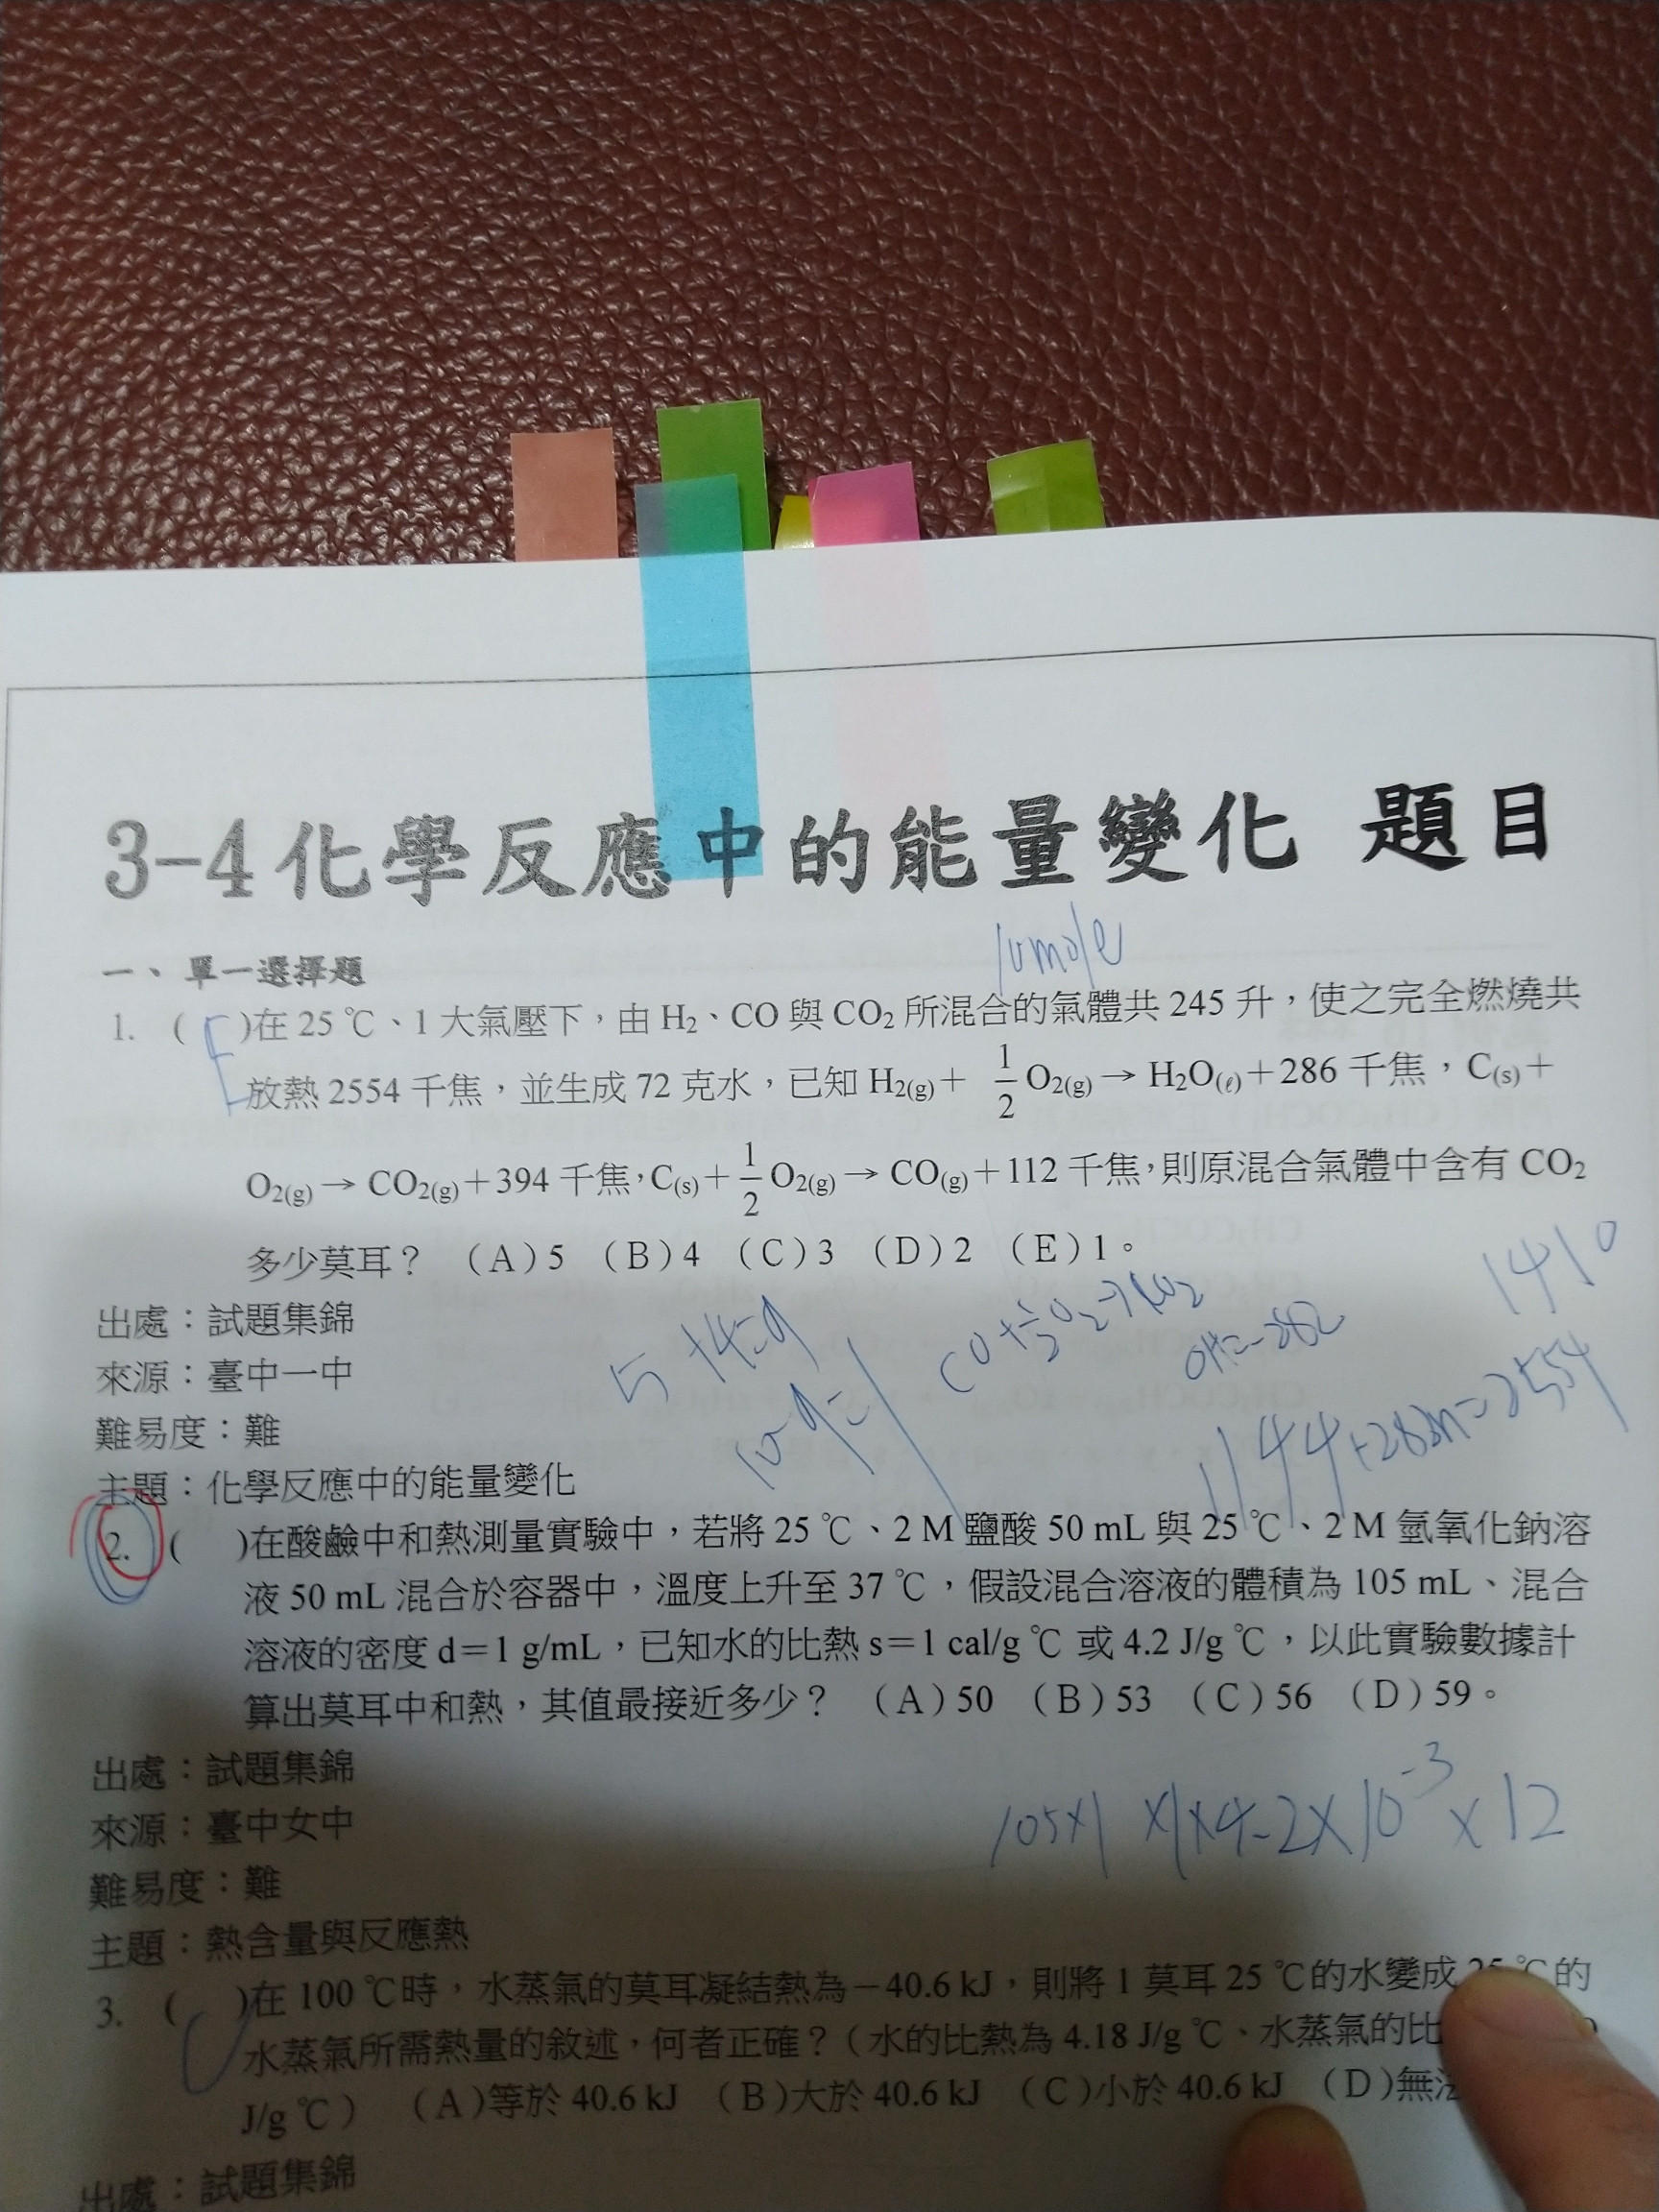 3-4化學反應中的能量變化 題目
一、單一選擇題
10mole
1. ( E )在 25 ℃、1 大氣壓下，由 H₂、CO 與 CO₂ 所混合的氣體共 245 升，使之完全燃燒共
放熱 2554 千焦，並生成 72 克水，已知 H₂(g)＋ 1/2 O₂(g)→ H₂O(ℓ)＋286 千焦，C(s)＋
O₂(g)→ CO₂(g)＋394 千焦，C(s)＋1/2 O₂(g)→ CO(g)＋112 千焦，則原混合氣體中含有 CO₂
多少莫耳？ （A）5 （B）4 （C）3 （D）2 （E）1。
1410
出處：試題集錦
5+4=9
CO+1/2O₂→CO₂
來源：臺中一中
10-9=1
1144+282n=2554
難易度：難
主題：化學反應中的能量變化
2. ( )在酸鹼中和熱測量實驗中，若將 25 ℃、2 M 鹽酸 50 mL 與 25 ℃、2 M 氫氧化鈉溶
液 50 mL 混合於容器中，溫度上升至 37 ℃，假設混合溶液的體積為 105 mL、混合
溶液的密度 d＝1 g/mL，已知水的比熱 s＝1 cal/g ℃ 或 4.2 J/g ℃，以此實驗數據計
算出莫耳中和熱，其值最接近多少？ （A）50 （B）53 （C）56 （D）59。
出處：試題集錦
105×1 ×1×4.2×10⁻³×12
來源：臺中女中
難易度：難
主題：熱含量與反應熱
3. ( C )在 100 ℃時，水蒸氣的莫耳凝結熱為－40.6 kJ，則將 1 莫耳 25 ℃的水變成 25 ℃的
水蒸氣所需熱量的敘述，何者正確？（水的比熱為 4.18 J/g ℃、水蒸氣的比
J/g ℃） （A）等於 40.6 kJ （B）大於 40.6 kJ （C）小於 40.6 kJ （D）無法
出處：試題集錦